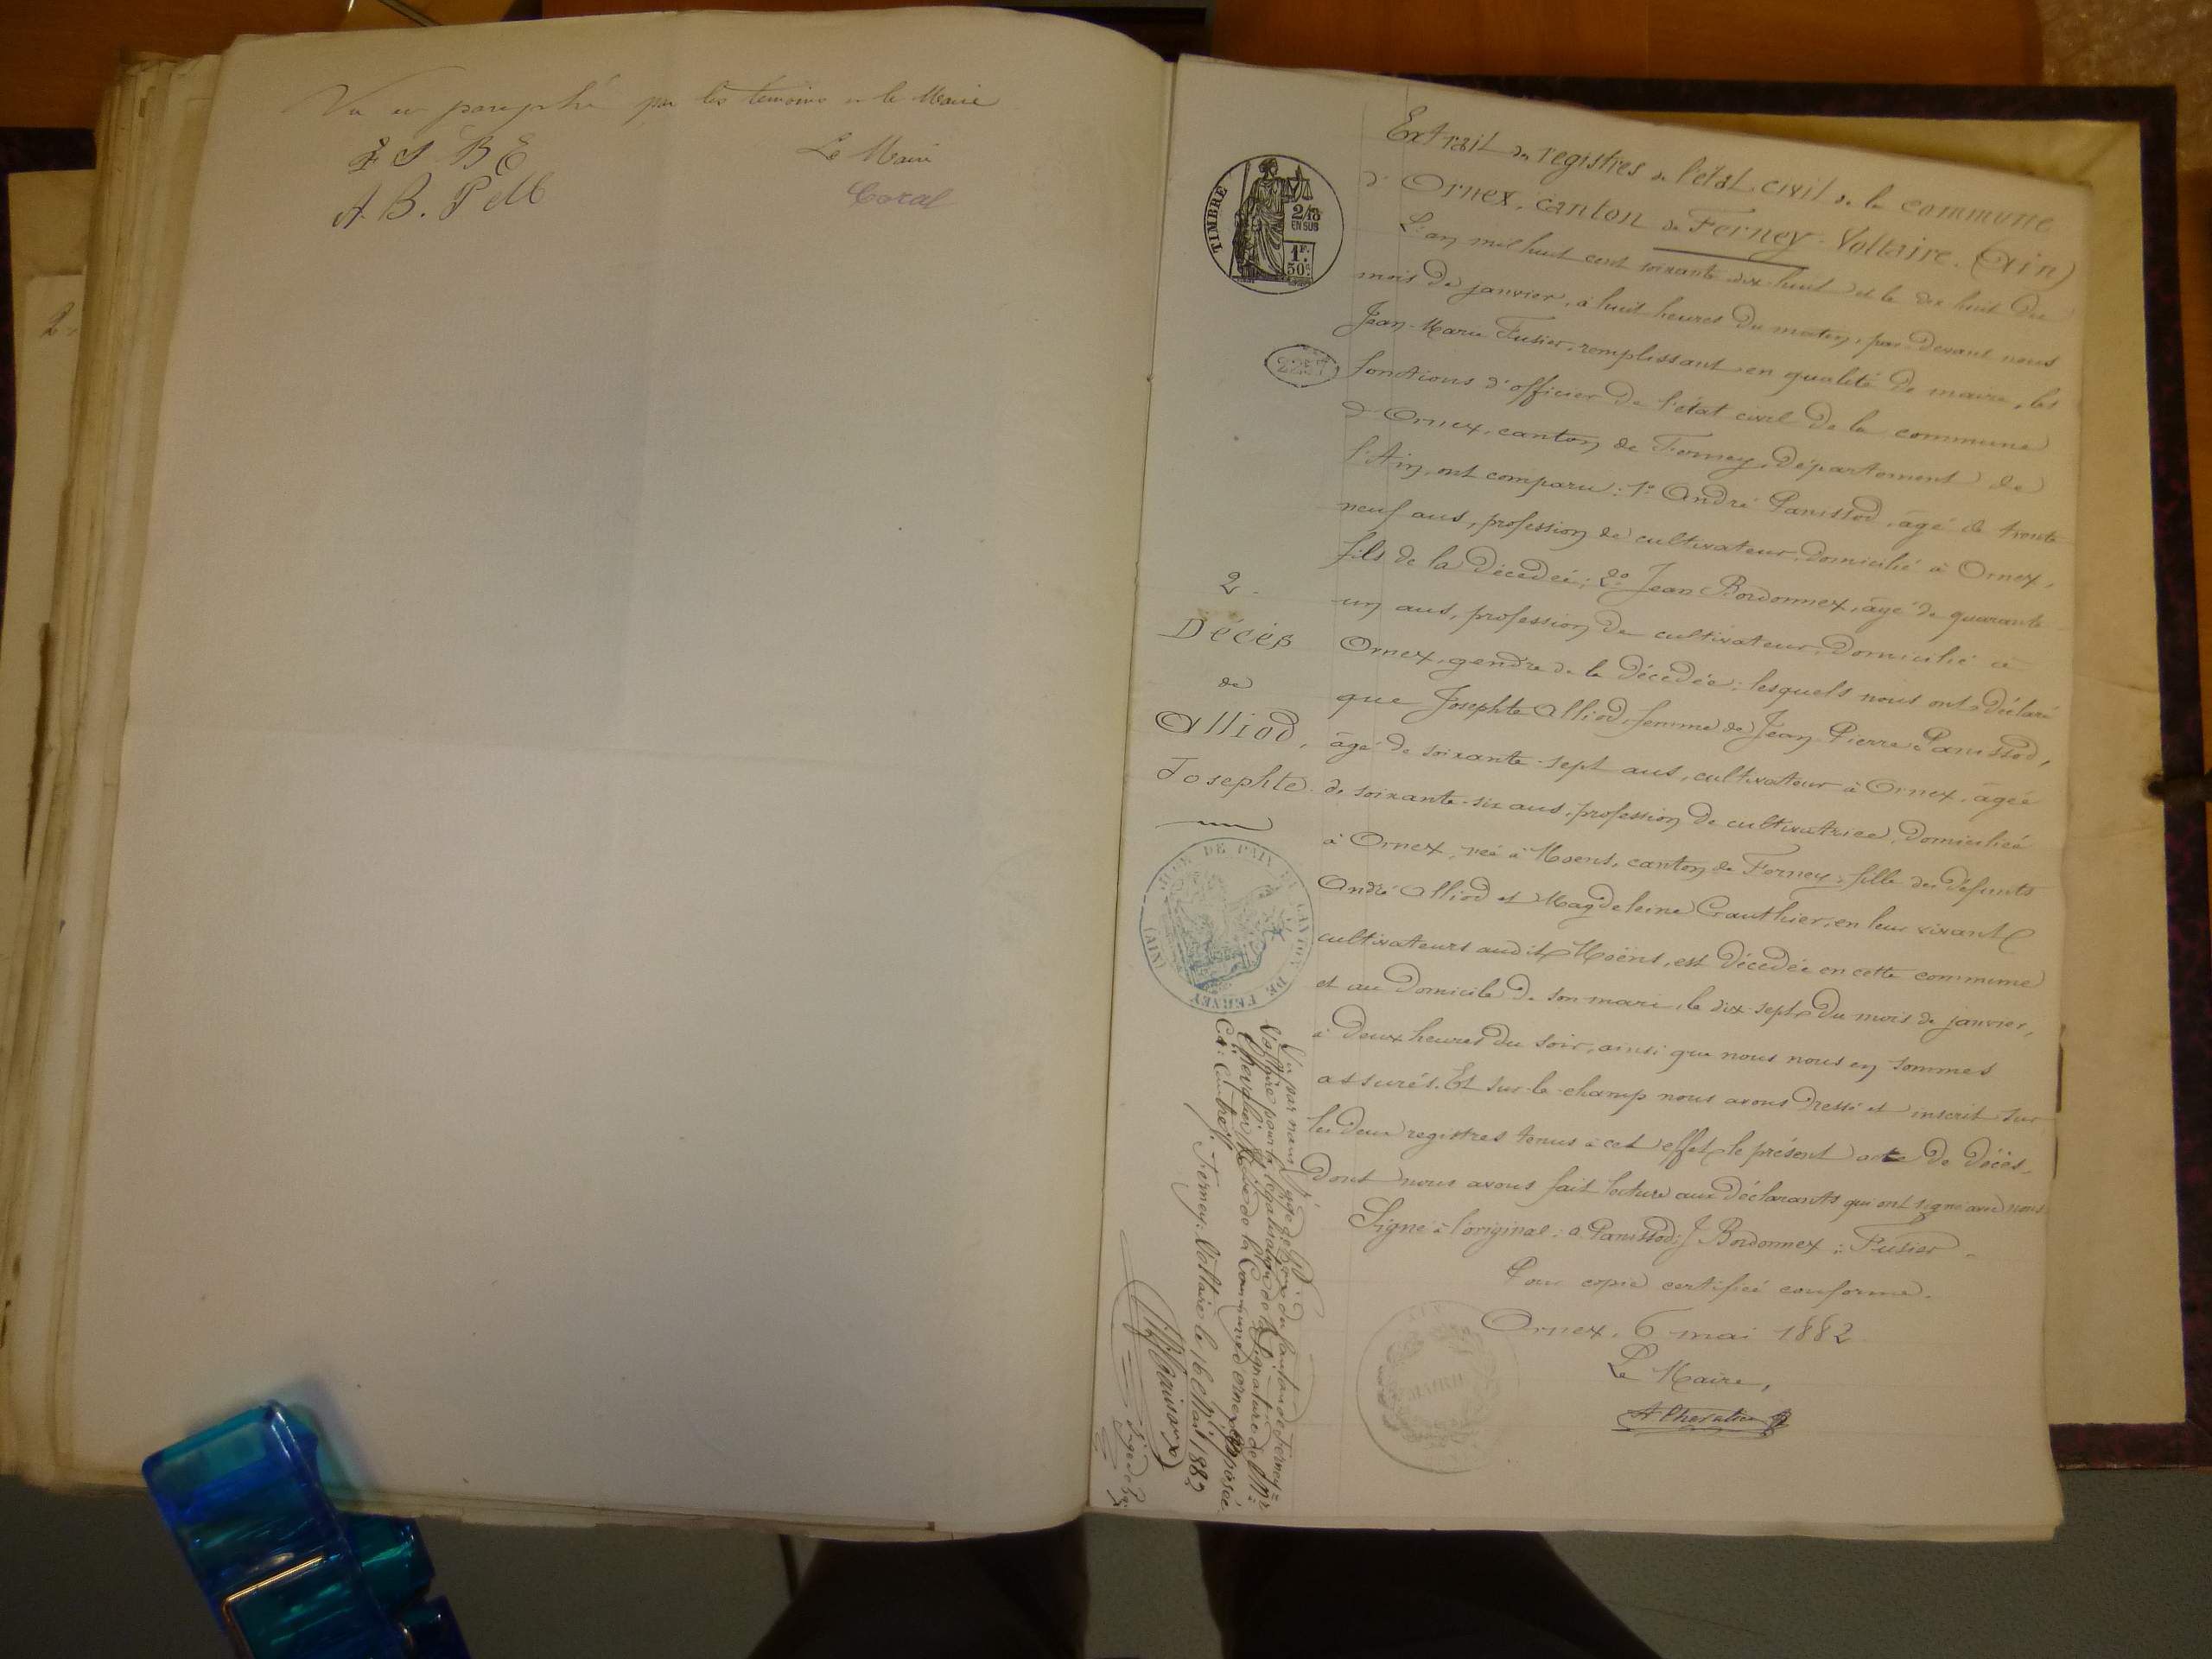 Vu et paraphé par les témoins et le Maire
F S B E
A. B. P M
Le Maire
Coral
2
TIMBRE
2/10
EN SUS
1F.
50c
Extrait des registres de l'état civil de la commune
d'Ornex, canton de Ferney-Voltaire. (Ain)
L'an mil huit cent soixante dix-huit et le dix huit du
mois de janvier, à huit heures du matin, par devant nous
Jean-Marie Fusier, remplissant en qualité de maire, les
fonctions d'officier de l'état civil de la commune
d'Ornex, canton de Ferney, département de
l'Ain, ont comparu: 1° André Panissod, âgé de trente
neuf ans, profession de cultivateur, domicilié à Ornex,
fils de la décédée; 2° Jean Bordonnex, âgé de quarante
un ans, profession de cultivateur, domicilié à
Ornex, gendre de la décédée; lesquels nous ont déclaré
que Josephte Alliod, femme de Jean Pierre Panissod,
âgé de soixante-sept ans, cultivateur à Ornex, âgée
de soixante-six ans, profession de cultivatrice, domiciliée
à Ornex, née à Moens, canton de Ferney, fille des défunts
André Alliod et Magdeleine Gauthier, en leur vivant
cultivateurs audit Moëns, est décédée en cette commune
et au domicile de son mari, le dix-sept du mois de janvier,
à deux heures du soir, ainsi que nous nous en sommes
assurés. Et sur-le-champ nous avons dressé et inscrit sur
les deux registres tenus à cet effet le présent acte de décès,
dont nous avons fait lecture aux déclarants qui ont signé avec nous.
Signé à l'original: A Panissod; J Bordonnex; Fusier.
Pour copie certifiée conforme.
Ornex, 6 mai 1882
Le Maire,
A Chevalier
MAIRIE
2
Décès
de
Alliod,
Josephte
JUGE DE PAIX DU CANTON DE FERNEY (AIN)
Vu par nous Juge de Paix du Canton de Ferney-
Voltaire pour la légalisation de la Signature de Mr
Chevalier Maire de la Commune d'Ornex apposée
Ci-contre. Ferney-Voltaire le 16 Mai 1882
Juge de Px